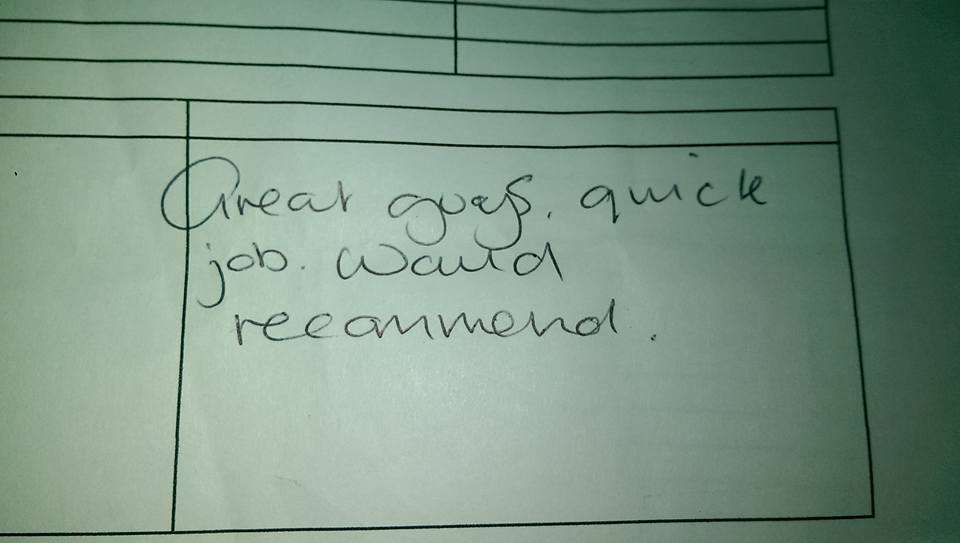 Great guys. quick
job. Would
recommend.